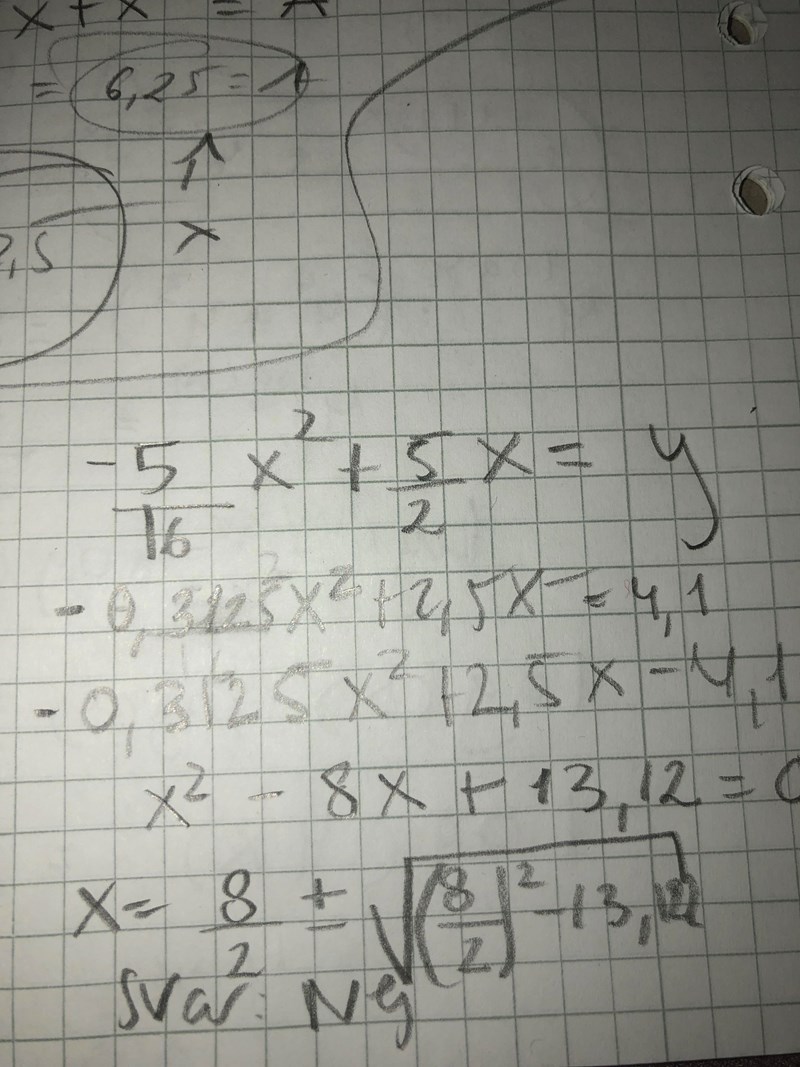 x + x = A
= 6,25 = A
↑
2,5 x
-5/16 x² + 5/2 x = y
- 0,3125x² + 2,5x = 4,1
- 0,3125x² + 2,5x - 4,1
x² - 8x + 13,12 = 0
x = 8/2 ± √(8/2)² - 13,12
Svar: Nej